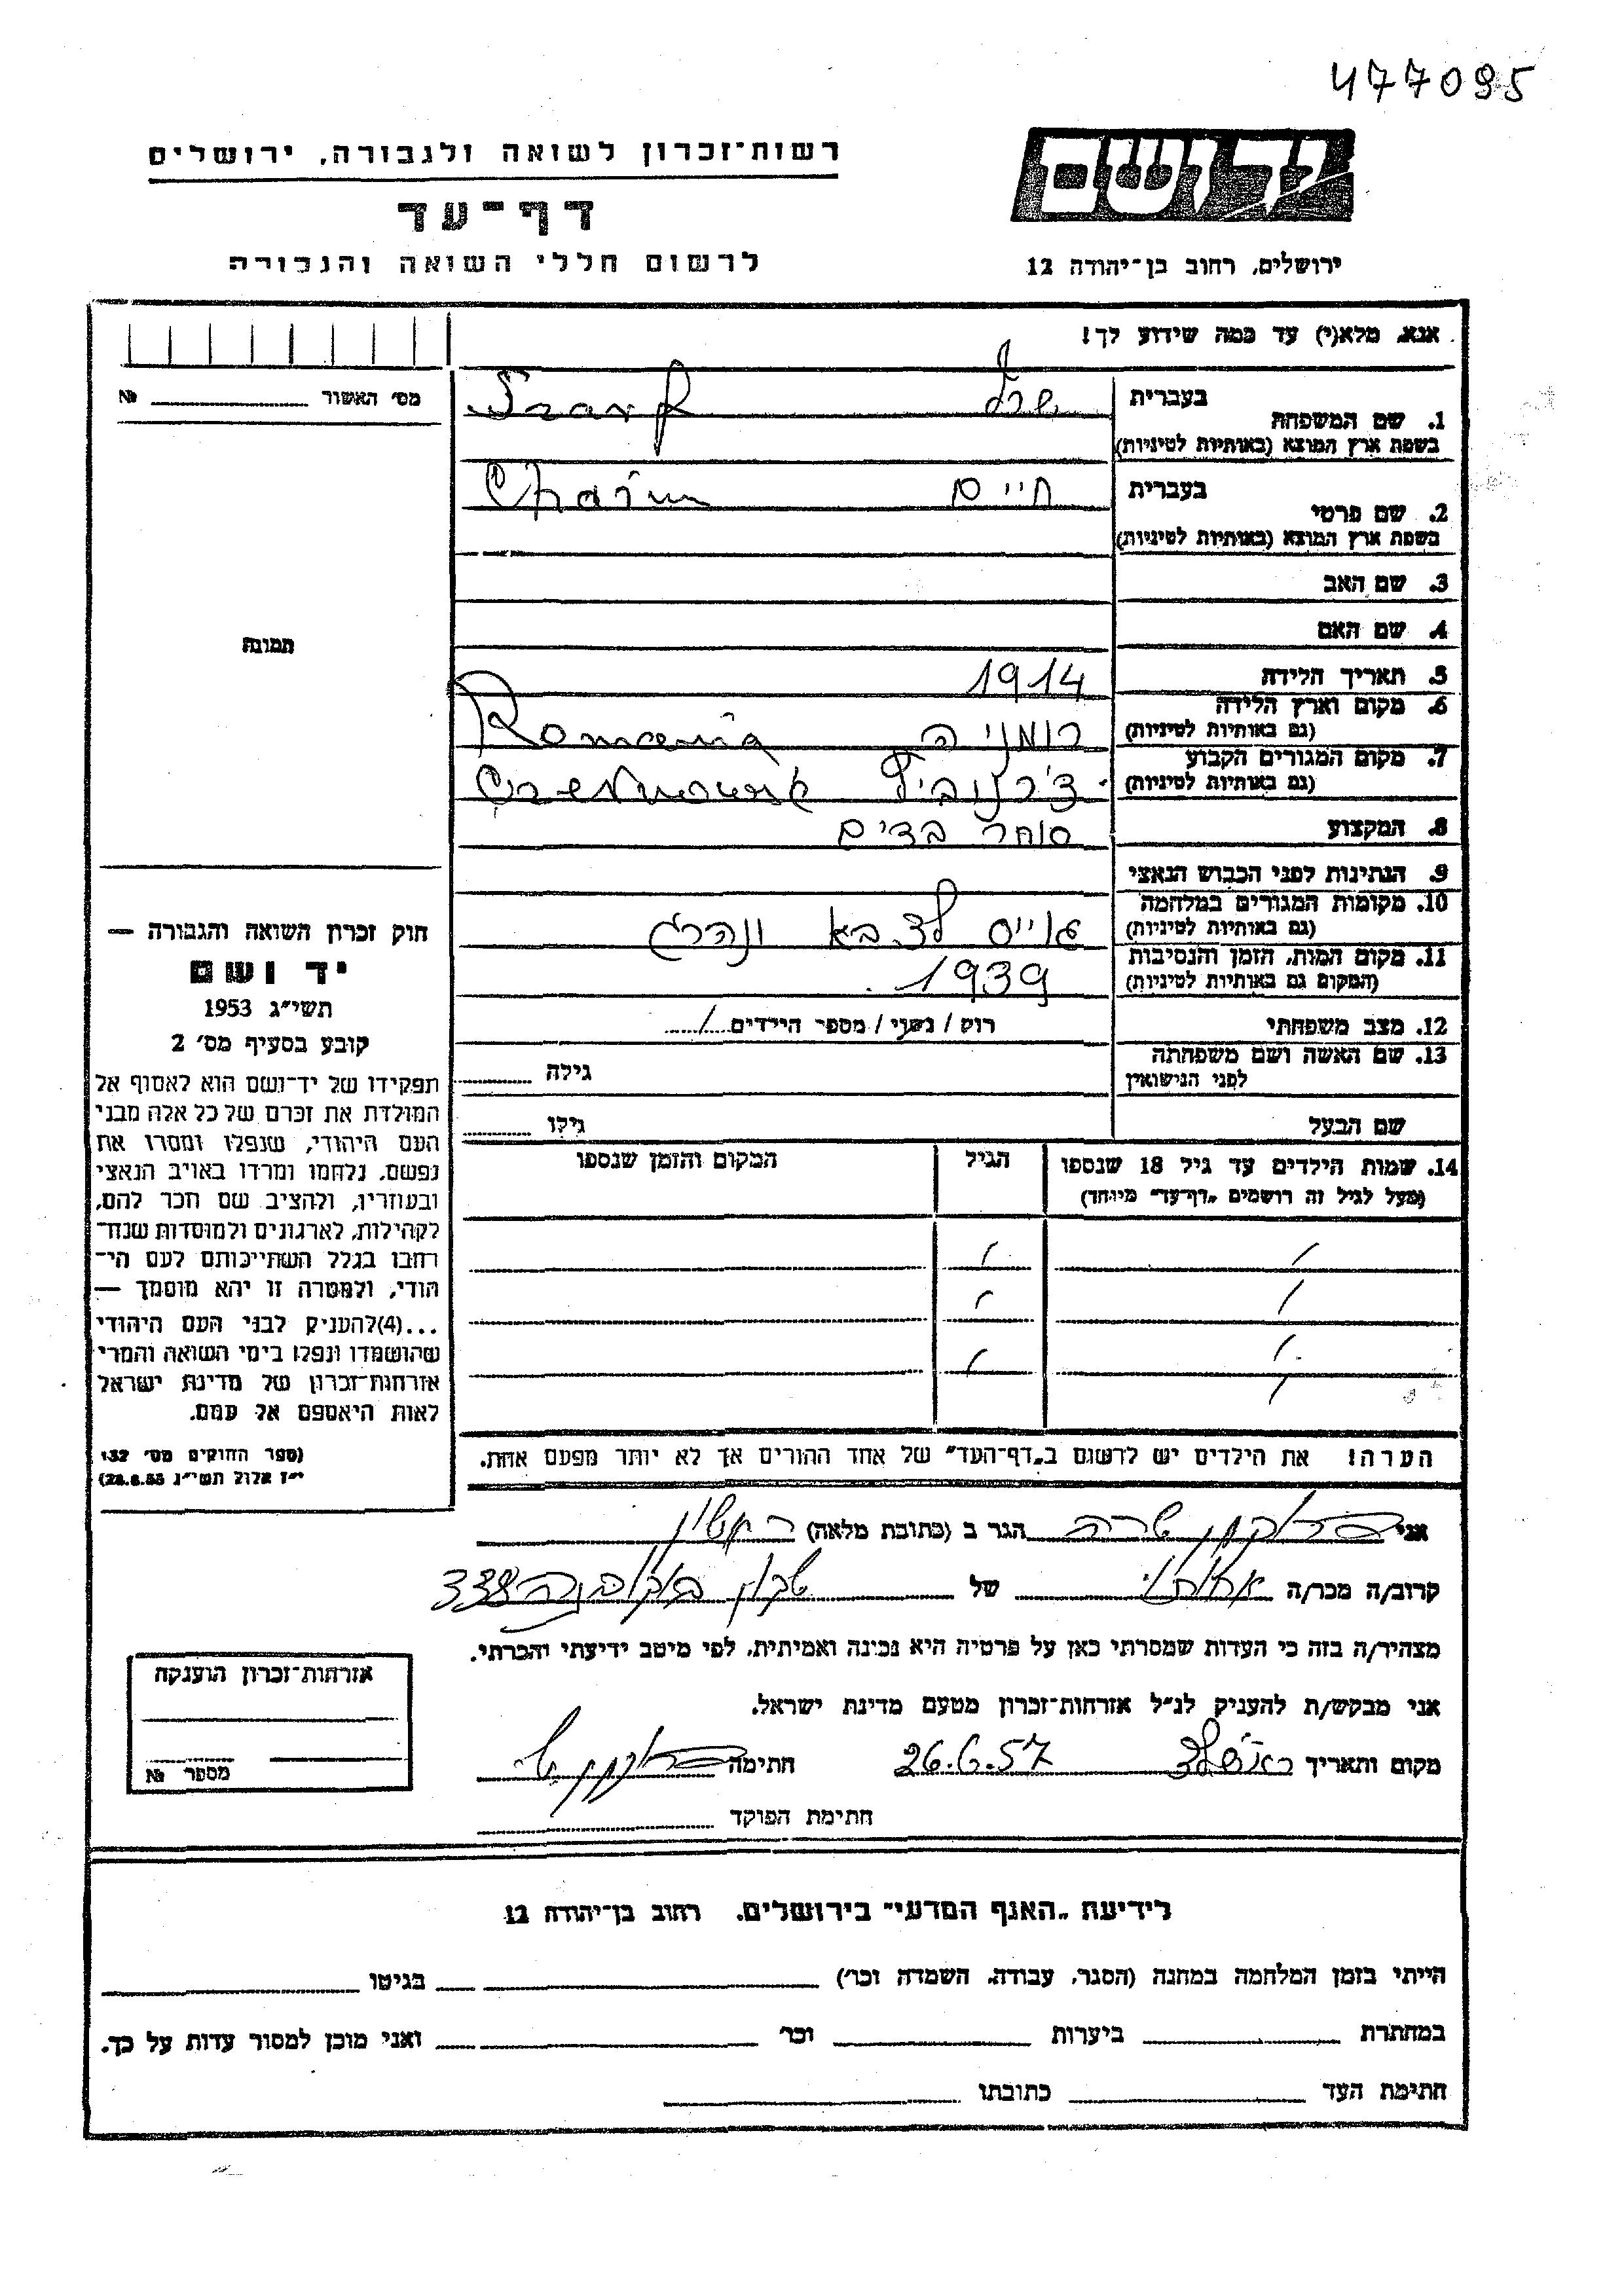 477095
רשות־זכרון לשואה ולגבורה, ירושלים
יד ושם
דף־עד
לרשום חללי השואה והגבורה
ירושלים, רחוב בן־יהודה 12
אנא, מלא(י) עד כמה שידוע לך!
מס׳ האשור № 
בעברית
שרף Szarf
1. שם המשפחה
בשפת ארץ המוצא (באותיות לטיניות)
בעברית
חיים Chaim
2. שם פרטי
בשפת ארץ המוצא (באותיות לטיניות)
3. שם האב
4. שם האם
תמונה
5. תאריך הלידה 1914
6. מקום וארץ הלידה
(גם באותיות לטיניות) רומניה Romania
7. מקום המגורים הקבוע
(גם באותיות לטיניות)
8. המקצוע סוחר בדים
9. הנתינות לפני הכבוש הנאצי
10. מקומות המגורים במלחמה
(גם באותיות לטיניות) גוייס לצבא ונהרג
11. מקום המות, הזמן והנסיבות
(המקום גם באותיות לטיניות) 1939
12. מצב משפחתי רוק / נשוי / מספר הילדים
13. שם האשה ושם משפחתה
לפני הנישואין גילה
שם הבעל גילו
14. שמות הילדים עד גיל 18 שנספו
(מעל לגיל זה רושמים „דף־עד” מיוחד)
הגיל
המקום והזמן שנספו
הערה! את הילדים יש לרשום ב„דף־העד” של אחד ההורים אך לא יותר מפעם אחת.
חוק זכרון השואה והגבורה —
יד ושם
תשי״ג 1953
קובע בסעיף מס׳ 2
תפקידו של יד־ושם הוא לאסוף אל
המולדת את זכרם של כל אלה מבני
העם היהודי, שנפלו ומסרו את
נפשם, נלחמו ומרדו באויב הנאצי
ובעוזריו, ולהציב שם וזכר להם,
לקהילות, לארגונים ולמוסדות שנח־
רבו בגלל השתייכותם לעם הי־
הודי, ולמטרה זו יהא מוסמך —
...(4)להעניק לבני העם היהודי
שהושמדו ונפלו בימי השואה והמרי
אזרחות־זכרון של מדינת ישראל
לאות היאספם אל עמם.
(ספר החוקים מס׳ 132
י״ז אלול תשי״ג 28.8.53)
אני שרה הגר ב (כתובת מלאה)
קרוב/ה מכר/ה של
מצהיר/ה בזה כי העדות שמסרתי כאן על פרטיה היא נכונה ואמיתית, לפי מיטב ידיעתי והכרתי.
אני מבקש/ת להעניק לנ״ל אזרחות־זכרון מטעם מדינת ישראל.
מקום ותאריך 26.6.57 חתימה
חתימת הפוקד
אזרחות־זכרון הוענקה
מספר №
לידיעת „האגף המדעי” בירושלים, רחוב בן־יהודה 12
הייתי בזמן המלחמה במחנה (הסגר, עבודה, השמדה וכר׳) בגיטו
במחתרת ביערות וכר׳ ואני מוכן למסור עדות על כך.
חתימת העד כתובתו